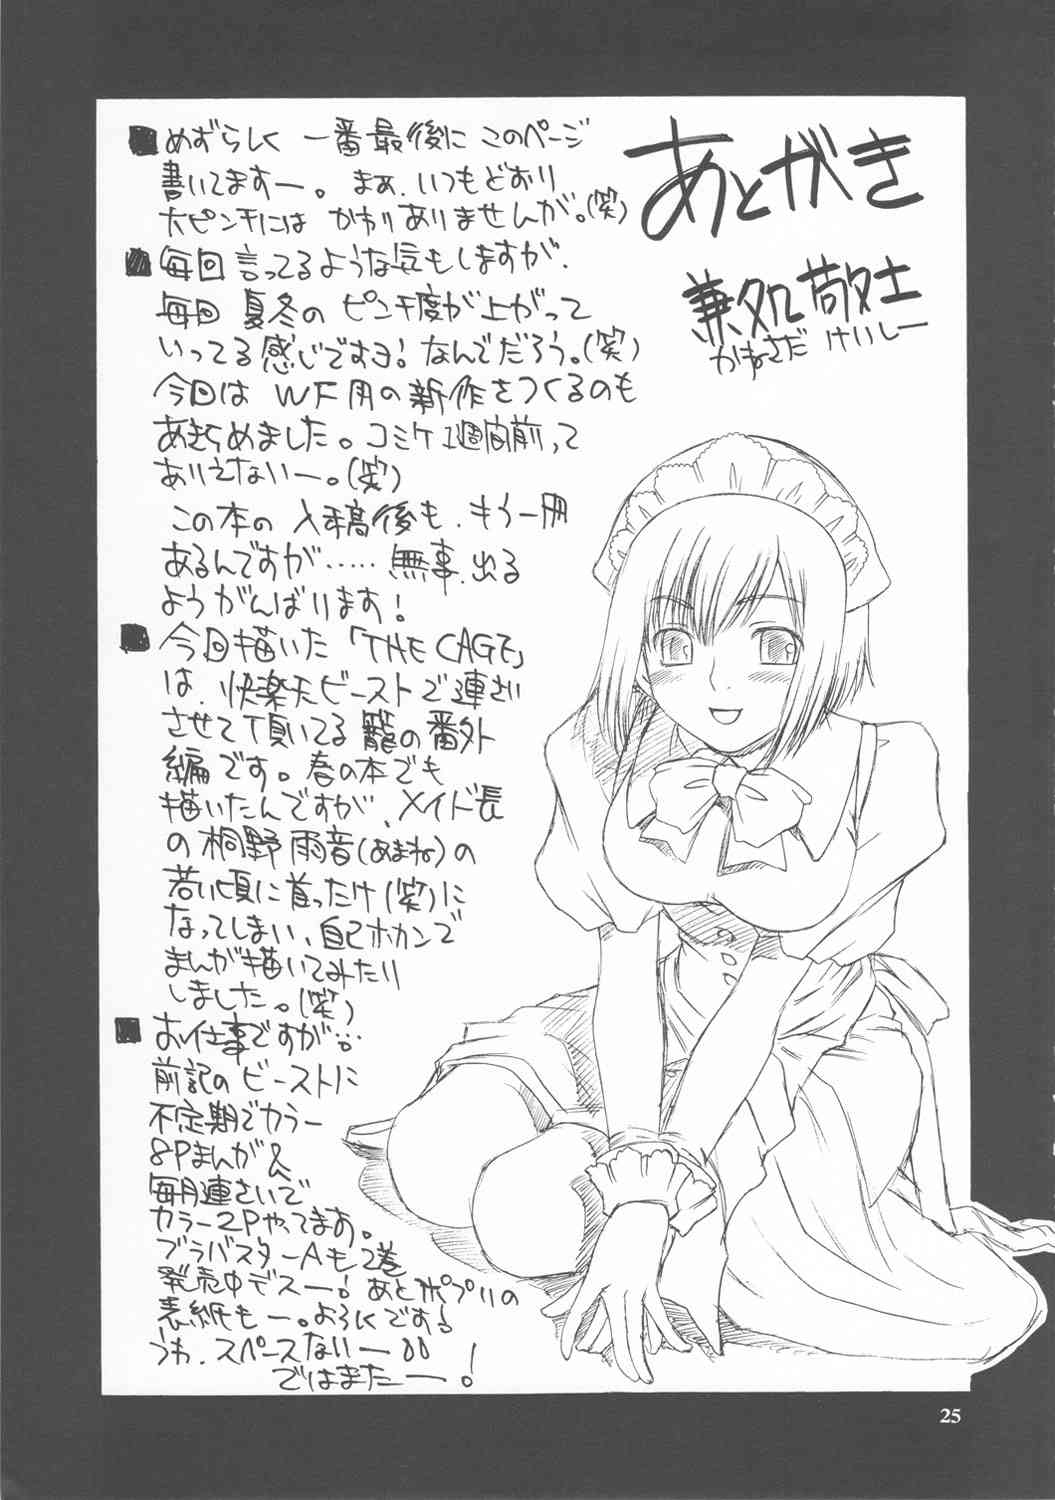 あとがき
兼処敬士
かねさだ けいしー
■めずらしく 一番最後に このページ
書いてますー。まぁ、いつもどおり
大ピンチには かわりありませんが。(笑)
■毎回言ってるような気もしますが、
毎回 夏冬の ピンチ度が上がって
いってる感じですヨ! なんでだろう。(笑)
今回は WF用の新作をつくるのも
あきらめました。コミケ1週間前って
ありえないー。(笑)
この本の 入稿後も、もう一冊
あるんですが…… 無事、出る
ようがんばります!
■今回描いた「THE CAGE」
は、快楽天ビーストで連さい
させて頂いてる 籠の番外
編です。春の本でも
描いたんですが、メイド長
の 桐野 雨音(あまね)の
若い頃に首ったけ(笑)に
なってしまい、自己ホカンで
まんが描いてみたり
しました。(笑)
■お仕事ですが…。
前記の ビーストに
不定期でカラー
8Pまんが&
毎月連さいで
カラー2Pやってます。
ブラバスターAも 2巻
発売中デスー! あと ポプリの
表紙も ー。よろしくでする
うわ、スペースないー
ではまたー!
25